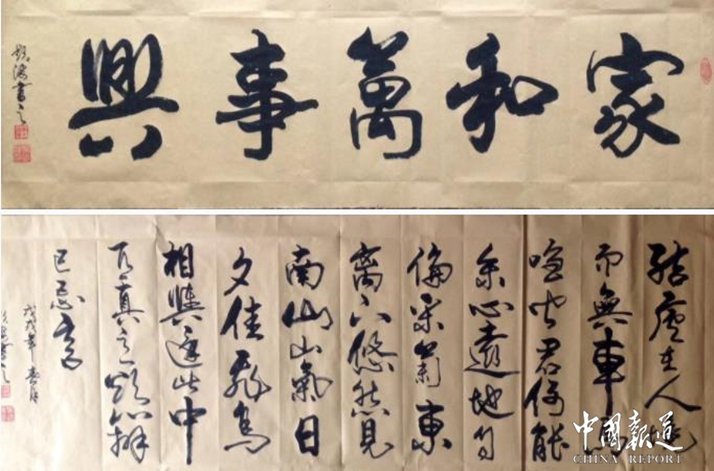 家和萬事興
書之
結廬在人境
而無車馬
喧問君何能
尔心遠地自
偏采菊東
籬下悠然見
南山山氣日
夕佳飛鳥
相與還此中
有真意欲辨
已忘言
戊戌年春月
書之
中國報道
CHINA REPORT